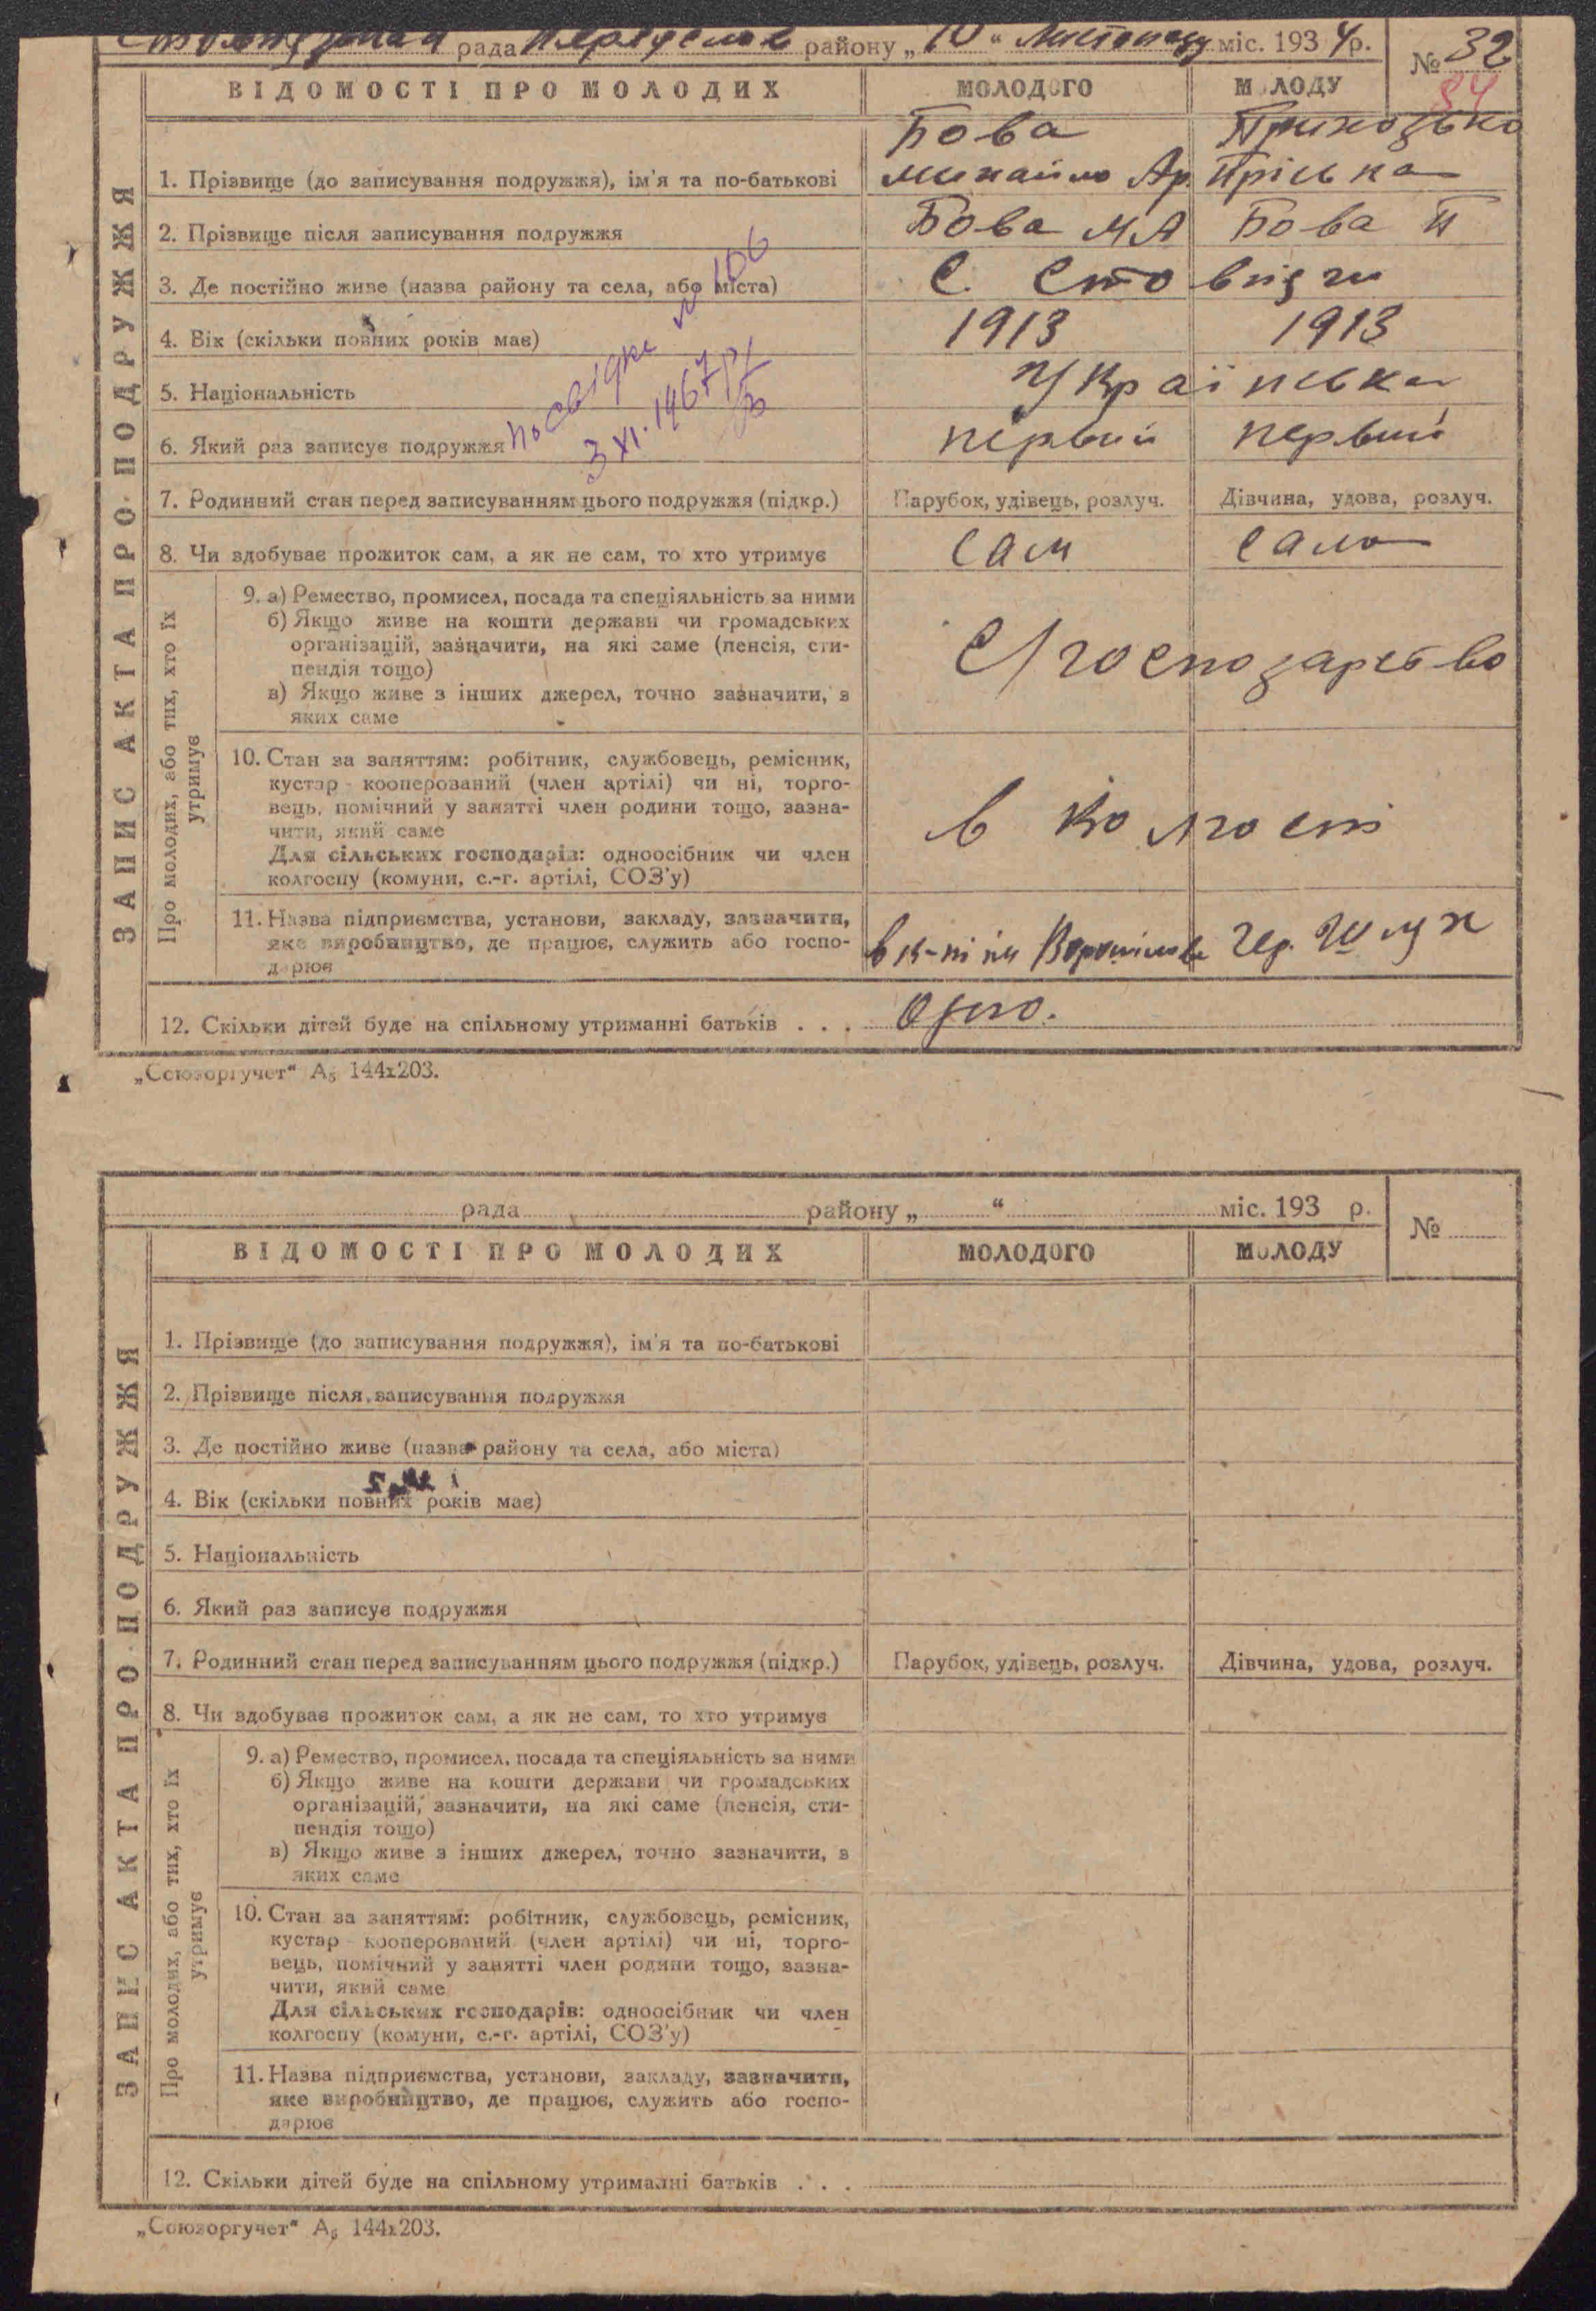 рада району „ 10 “ Листопаду міс. 193 4 р.
№ 32
84
ВІДОМОСТІ ПРО МОЛОДИХ МОЛОДОГО МОЛОДУ
ЗАПИС АКТА ПРО ПОДРУЖЖЯ
Бова Приходько
1. Прізвище (до записування подружжя), ім'я та по-батькові Михайло Ар. Пріська
2. Прізвище після записування подружжя Бова МА Бова П
3. Де постійно живе (назва району та села, або міста) С. Стовпяги
4. Вік (скільки повних років має) 1913 1913
5. Національність Українська
6. Який раз записує подружжя первий первий
посвідка № 106
3 XI. 1967 р.
7. Родинний стан перед записуванням цього подружжя (підкр.) Парубок, удівець, розлуч. Дівчина, удова, розлуч.
8. Чи здобуває прожиток сам, а як не сам, то хто утримує сам сама
Про молодих, або тих, хто їх утримує
9. а) Ремество, промисел, посада та спеціяльність за ними
б) Якщо живе на кошти держави чи громадських
організацій, зазначити, на які саме (пенсія, сти-
пендія тощо)
в) Якщо живе з інших джерел, точно зазначити, з
яких саме
С/господарство
10. Стан за заняттям: робітник, службовець, ремісник,
кустар - кооперований (член артілі) чи ні, торго-
вець, помічний у занятті член родини тощо, зазна-
чити, який саме
Для сільських господарів: одноосібник чи член
колгоспу (комуни, с.-г. артілі, СОЗ'у)
в колгоспі
11. Назва підприємства, установи, закладу, зазначити,
яке виробництво, де працює, служить або госпо-
дарює
в к-пі ім Ворошилова Чер. Шлях
12. Скільки дітей буде на спільному утриманні батьків . . . одно.
„Союзоргучет“ А5 144х203.
рада району „ “ міс. 193 р.
№
ВІДОМОСТІ ПРО МОЛОДИХ МОЛОДОГО МОЛОДУ
ЗАПИС АКТА ПРО ПОДРУЖЖЯ
1. Прізвище (до записування подружжя), ім'я та по-батькові
2. Прізвище після записування подружжя
3. Де постійно живе (назва району та села, або міста)
4. Вік (скільки повних років має)
5. Національність
6. Який раз записує подружжя
7. Родинний стан перед записуванням цього подружжя (підкр.) Парубок, удівець, розлуч. Дівчина, удова, розлуч.
8. Чи здобуває прожиток сам, а як не сам, то хто утримує
Про молодих, або тих, хто їх утримує
9. а) Ремество, промисел, посада та спеціяльність за ними
б) Якщо живе на кошти держави чи громадських
організацій, зазначити, на які саме (пенсія, сти-
пендія тощо)
в) Якщо живе з інших джерел, точно зазначити, з
яких саме
10. Стан за заняттям: робітник, службовець, ремісник,
кустар - кооперований (член артілі) чи ні, торго-
вець, помічний у занятті член родини тощо, зазна-
чити, який саме
Для сільських господарів: одноосібник чи член
колгоспу (комуни, с.-г. артілі, СОЗ'у)
11. Назва підприємства, установи, закладу, зазначити,
яке виробництво, де працює, служить або госпо-
дарює
12. Скільки дітей буде на спільному утриманні батьків . . .
„Союзоргучет“ А5 144х203.